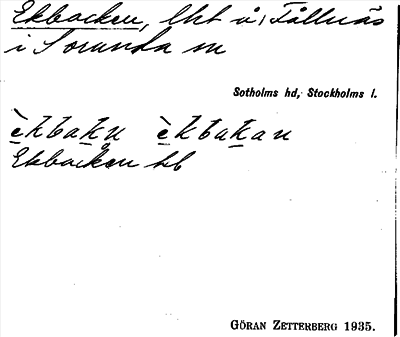 Ekbacken, lht å, Fållnäs
i Sorunda sn
Sotholms hd, Stockholms l.
è̱kbaḵn è̱kbaḵan
Ekbacken hb
GÖRAN ZETTERBERG 1935.